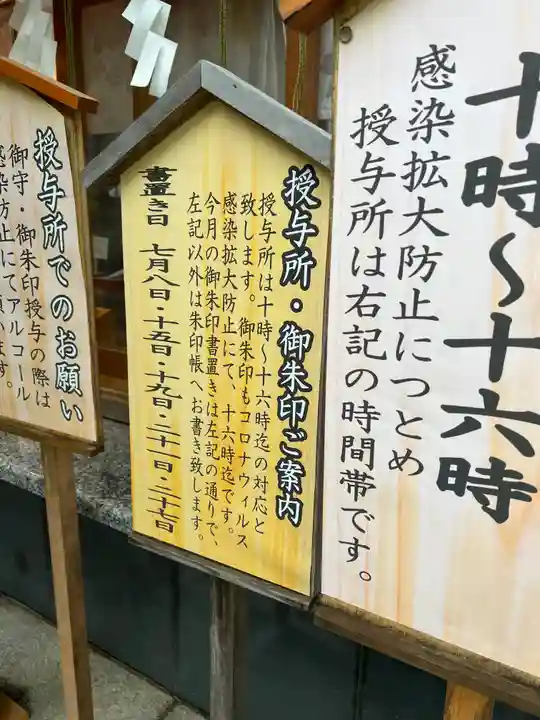 十時〜十六時
感染拡大防止につとめ
授与所は右記の時間帯です。
授与所・御朱印ご案内
授与所は十時〜十六時迄の対応と
致します。御朱印もコロナウィルス
感染拡大防止にて、十六時迄です。
今月の御朱印書置きは左記の通りで、
左記以外は朱印帳へお書き致します。
書置き日 七月八日・十五日・十九日・二十一日・二十七日
授与所でのお願い
御守・御朱印授与の際は
感染防止にてアルコール
います。